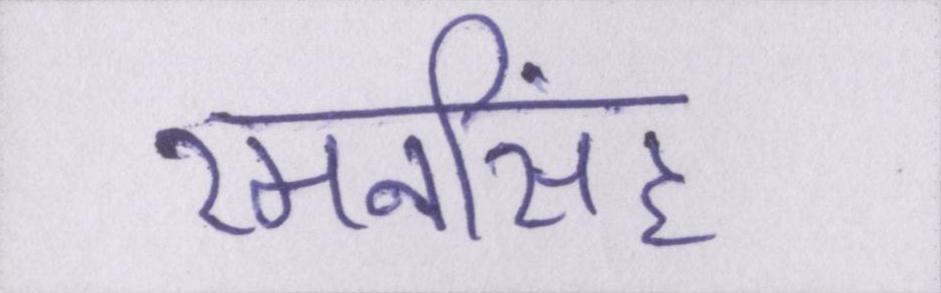 रमनसिंह